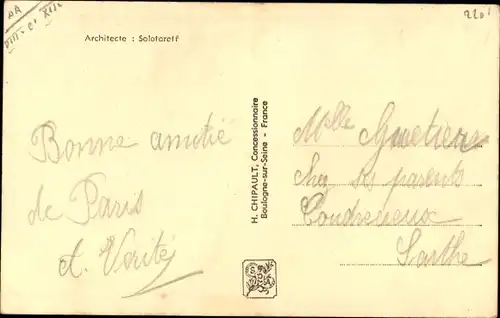 AA
2201
Architecte : Solotareff
Bonne amitié
de Paris
H. CHIPAULT, Concessionnaire
Boulogne-sur-Seine - France
Melle
Chez ses parents
Coudrecieux
Sarthe